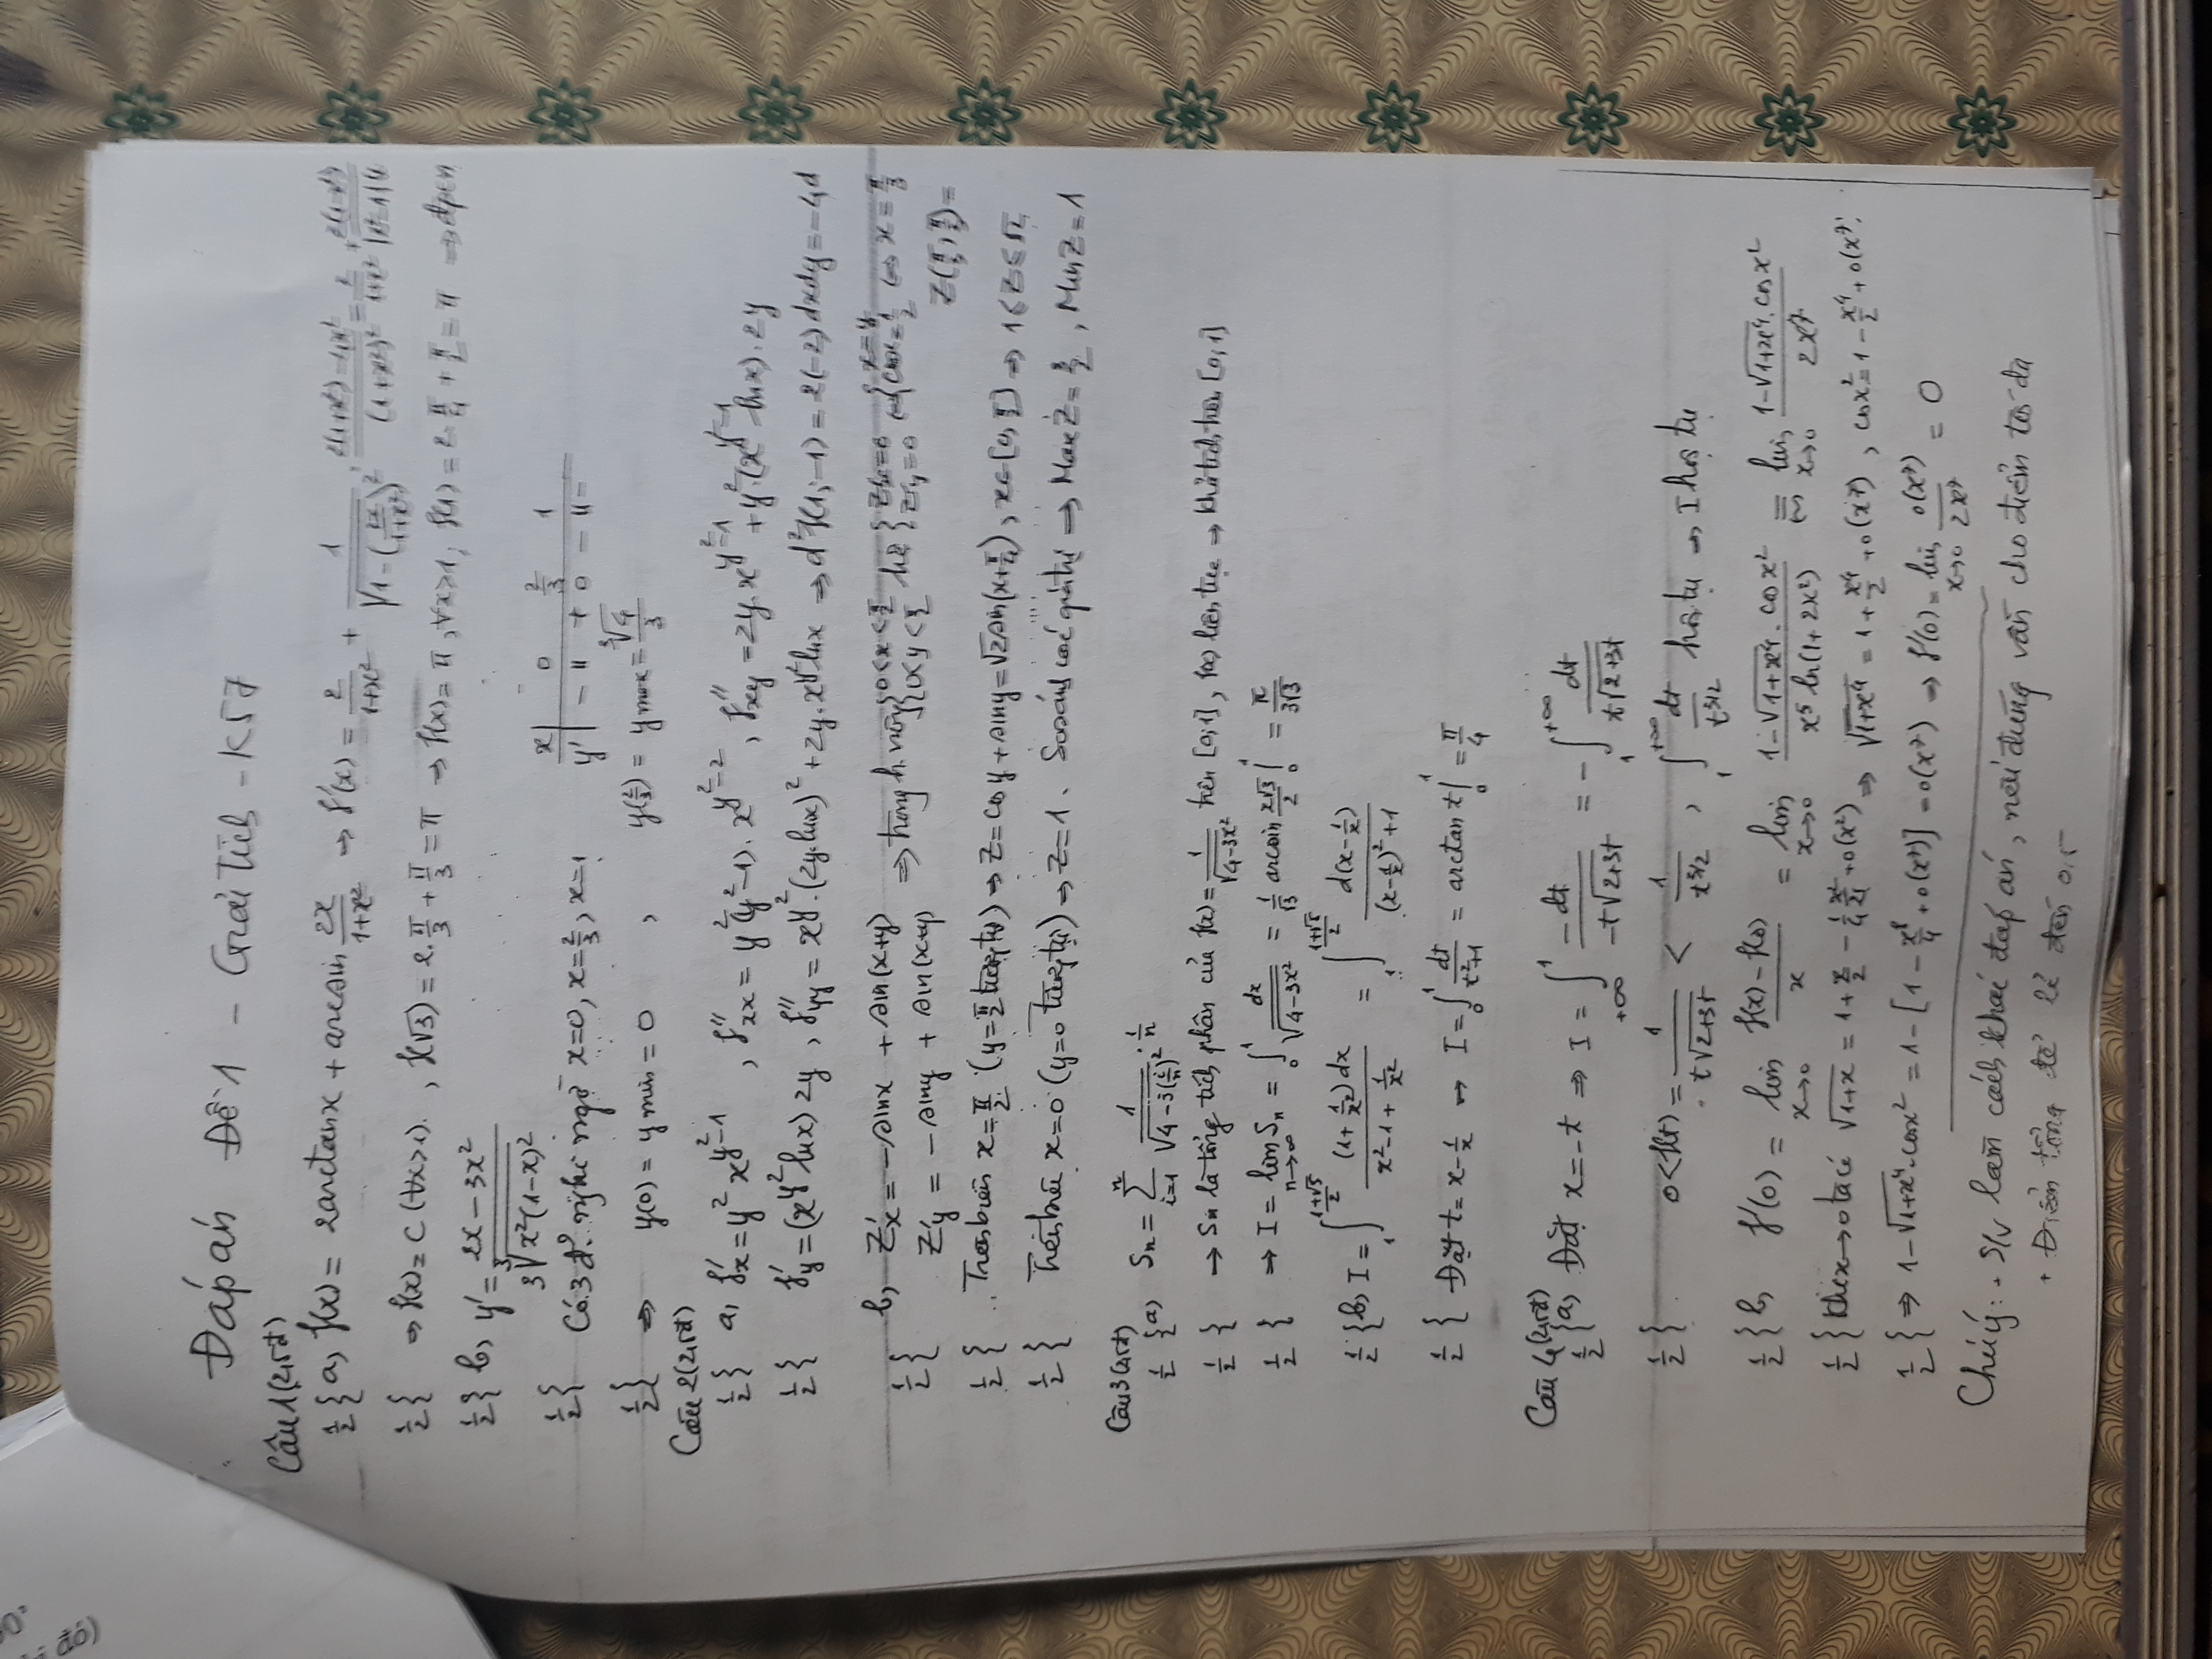 00°
i đó)
Đáp án Đề 1 - Giải tích - K57
Câu 1 (2,5đ)
1/2 { a, f(x) = 2arctanx + arcsin 2x/(1+x²) → f'(x) = 2/(1+x²) + 1/√(1-(2x/(1+x²))²) · (2(1+x²)-4x²)/(1+x²)² = 2/(1+x²) +
1/2 { ⇒ f(x) = C (∀x>1). , f(√3) = 2.π/3 + π/3 = π → f(x) = π, ∀x>1, f(1) = 2.π/4 + π/2 = π → đpcm
1/2 { b, y' = (2x - 3x²)/(3∛(x²(1-x))²)
1/2 { Có 3 đ? nghi ngờ x=0, x=2/3, x=1
x | 0 2/3 1
y' | - || + 0 - || -
1/2 { ⇒ y(0) = y min = 0 , y(2/3) = y max = ∛4/3
Câu 2 (2,5đ)
1/2 { a, f'x = y² x^(y²-1) , f''xx = y²(y²-1). x^(y²-2) , f''xy = 2y.x^(y²-1) + y².(x^(y²-1) lnx). 2y
1/2 { f'y = (x^(y²) lnx) 2y , f''yy = x^(y²).(2y.lnx)² + 2y.x^(y²) lnx ⇒ d²f(1,-1) = 2(-2) dxdy = -4d
b, Z'x = -sinx + sin(x+y)
1/2 { Z'y = -siny + sin(x+y)
⇒ trong h. vuông { 0<x<π/2 0<y<π/2 hệ { Z'x=0 Z'y=0 ⇔ { x=y cosx=1/2 ⇔ x = π/3
Z(π/3, π/3) =
1/2 { . Trên biên x = π/2 (y = π/2 tương tự) → Z = cosy + siny = √2 sin(x+π/4), x∈[0, π/2] → 1 ≤ Z ≤ √2
1/2 { Trên biên x=0 (y=0 tương tự) → Z=1. So sánh các giá trị ⇒ Max Z = 3/2 , Min Z = 1
Câu 3 (2,5đ)
1/2 { a) Sn = Σ_(i=1)^n 1/√(4-3(i/n)²) · 1/n
1/2 { → Sn là tổng tích phân của f(x) = 1/√(4-3x²) trên [0,1], f(x) liên tục → khả tích trên [0,1]
1/2 { ⇒ I = lim_(n→∞) Sn = ∫_0^1 dx/√(4-3x²) = 1/√3 arcsin x√3/2 |_0^1 = π/(3√3)
1/2 { b, I = ∫_1^((1+√5)/2) (1+1/x²)dx/(x²-1+1/x²) = ∫_1^((1+√5)/2) d(x-1/x)/((x-1/x)²+1)
1/2 { Đặt t = x-1/x → I = ∫_0^1 dt/(t²+1) = arctan t |_0^1 = π/4
Câu 4 (2,5đ)
1/2 { a, Đặt x = -t ⇒ I = ∫_(+∞)^1 -dt/(-t√(2+3t)) = - ∫_1^(+∞) dt/(t√(2+3t))
1/2 { 0 < f(t) = 1/(t√(2+3t)) < 1/t^(3/2) , ∫_1^(+∞) dt/t^(3/2) hội tụ → I hội tụ
1/2 { b, f'(0) = lim_(x→0) (f(x) - f(0))/x = lim_(x→0) (1-√(1+x⁴).cosx²)/(x⁵ ln(1+2x²)) = (~) lim_(x→0) (1-√(1+x⁴).cosx²)/(2x⁷)
1/2 { Khi x→0 ta có √(1+x) = 1 + x/2 - 1/4 x²/2! + o(x²) ⇒ √(1+x⁴) = 1 + x⁴/2 + o(x⁷) , cosx² = 1 - x⁴/2 + o(x⁷)
1/2 { ⇒ 1-√(1+x⁴).cosx² = 1 - [1 - x⁸/4 + o(x⁷)] = o(x⁷) → f'(0) = lim_(x→0) o(x⁷)/(2x⁷) = 0
Chú ý: . S/v làm cách khác đáp án, nếu đúng vẫn cho điểm tối đa
+ Điểm tổng để lẻ đến 0,5